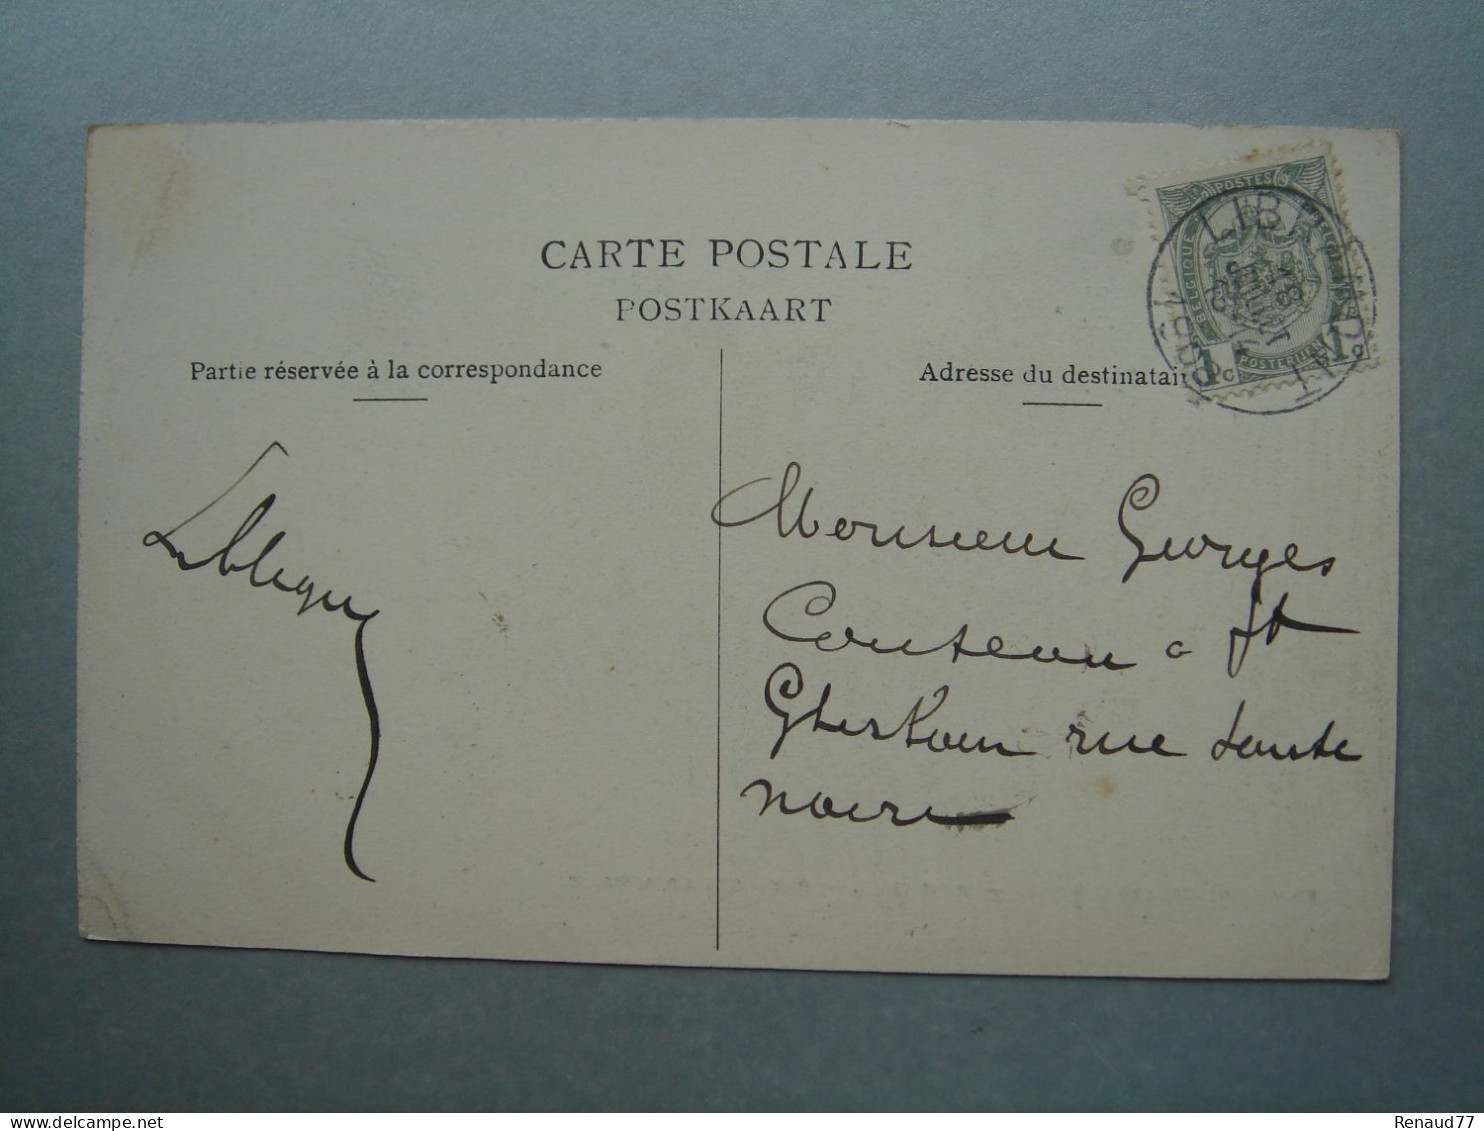 CARTE POSTALE
POSTKAART
Partie réservée à la correspondance
Adresse du destinatai
POSTES
BELGIQUE
POSTERIJEN
1c 1c
LIBRAMONT
Monsieur Georges
Couteau a St
Ghislain rue
noire
Renaud77